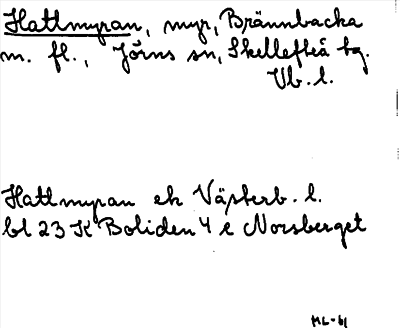 Hattmyran, myr, Brännbacka
m. fl., Jörns sn, Skellefteå tg.
Vb. l.
Hattmyran ek Västerb. l.
bl 23 K Boliden 4 e Norsberget
ML-61